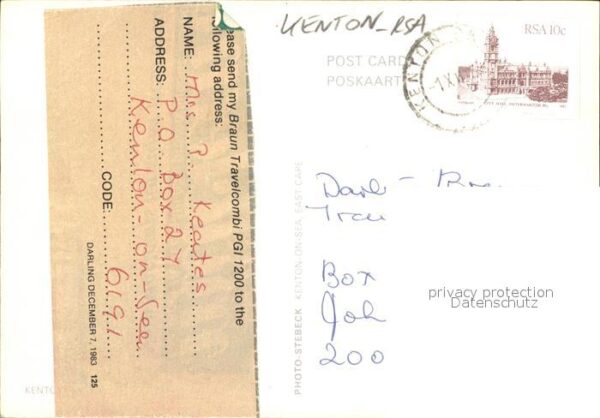 KENTON_RSA
POST CARD
POSKAART
RSA 10c
KENTON
Please send my Braun Travelcombi PGI 1200 to the
following address:
NAME: Mrs P. Keates
ADDRESS: P O Box 27
Kenton-on-Sea
CODE: 6191
DARLING DECEMBER 7, 1983 125
PHOTO-STEBECK KENTON-ON-SEA, EAST CAPE
Box
Joh
200
privacy protection
Datenschutz
KENTO